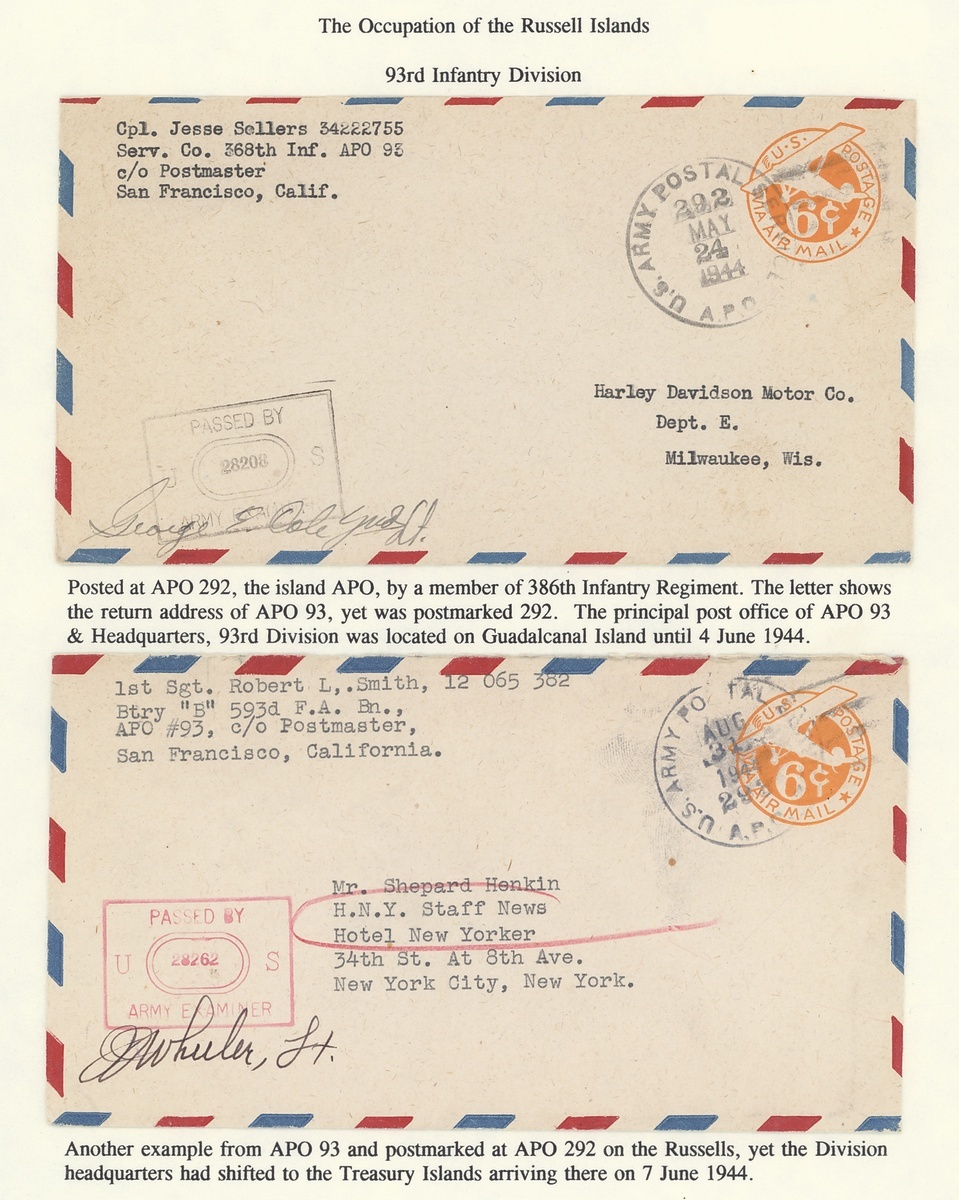 The Occupation of the Russell Islands
93rd Infantry Division
Cpl. Jesse Sellers 34222755
Serv. Co. 368th Inf. APO 93
c/o Postmaster
San Francisco, Calif.
U.S. ARMY POSTAL
292
MAY
24
1944
A.P.O.
U.S. POSTAGE
6¢
VIA AIR MAIL
Harley Davidson Motor Co.
Dept. E.
Milwaukee, Wis.
PASSED BY
U 28208 S
ARMY EXAMINER
George E.
Posted at APO 292, the island APO, by a member of 386th Infantry Regiment. The letter shows
the return address of APO 93, yet was postmarked 292. The principal post office of APO 93
& Headquarters, 93rd Division was located on Guadalcanal Island until 4 June 1944.
1st Sgt. Robert L,.Smith, 12 065 382
Btry "B" 593d F.A. Bn.,
APO #93, c/o Postmaster,
San Francisco, California.
U.S. ARMY POSTAL
AUG
31
1944
A.P.
U.S. POSTAGE
6¢
VIA AIR MAIL
Mr. Shepard Henkin
H.N.Y. Staff News
Hotel New Yorker
34th St. At 8th Ave.
New York City, New York.
PASSED BY
U 28262 S
ARMY EXAMINER
Wheeler, Lt.
Another example from APO 93 and postmarked at APO 292 on the Russells, yet the Division
headquarters had shifted to the Treasury Islands arriving there on 7 June 1944.